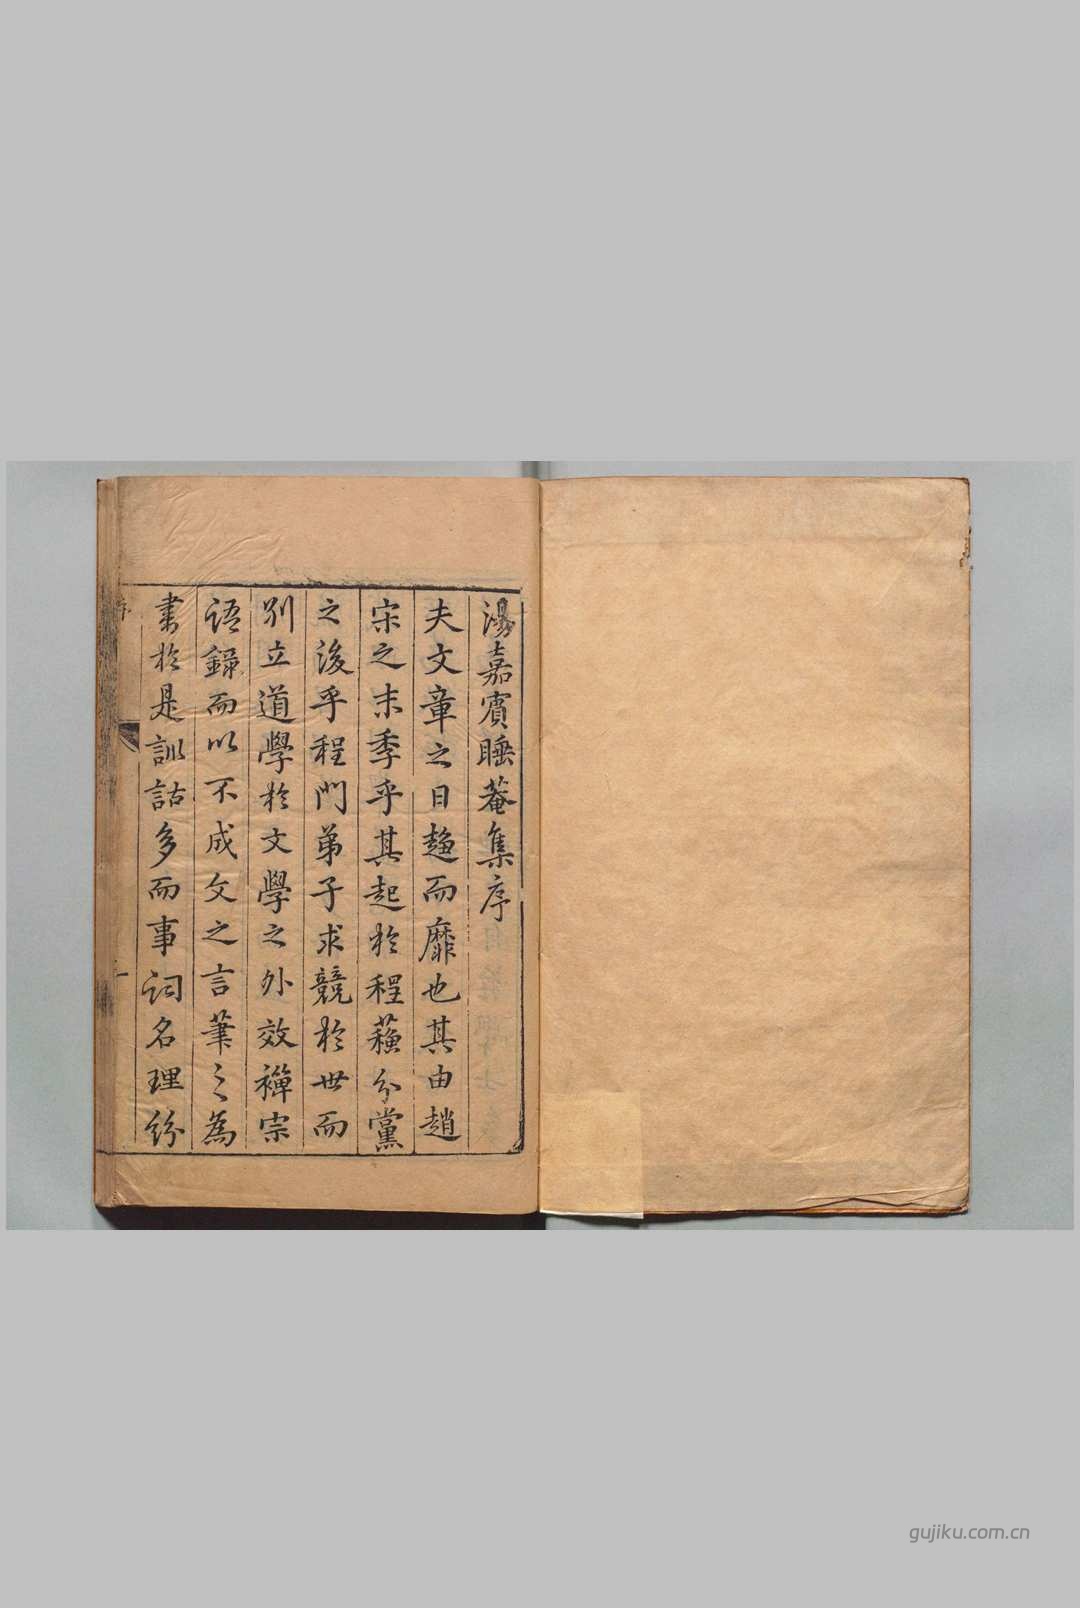 湯嘉賓睡菴集序
夫文章之日趨而靡也其由趙
宋之末季乎其起於程蘓分黨
之後乎程門弟子求競於世而
別立道學於文學之外效禪宗
語録而以不成文之言筆之為
書於是訓詁多而事詞名理紛
序
一
gujiku.com.cn